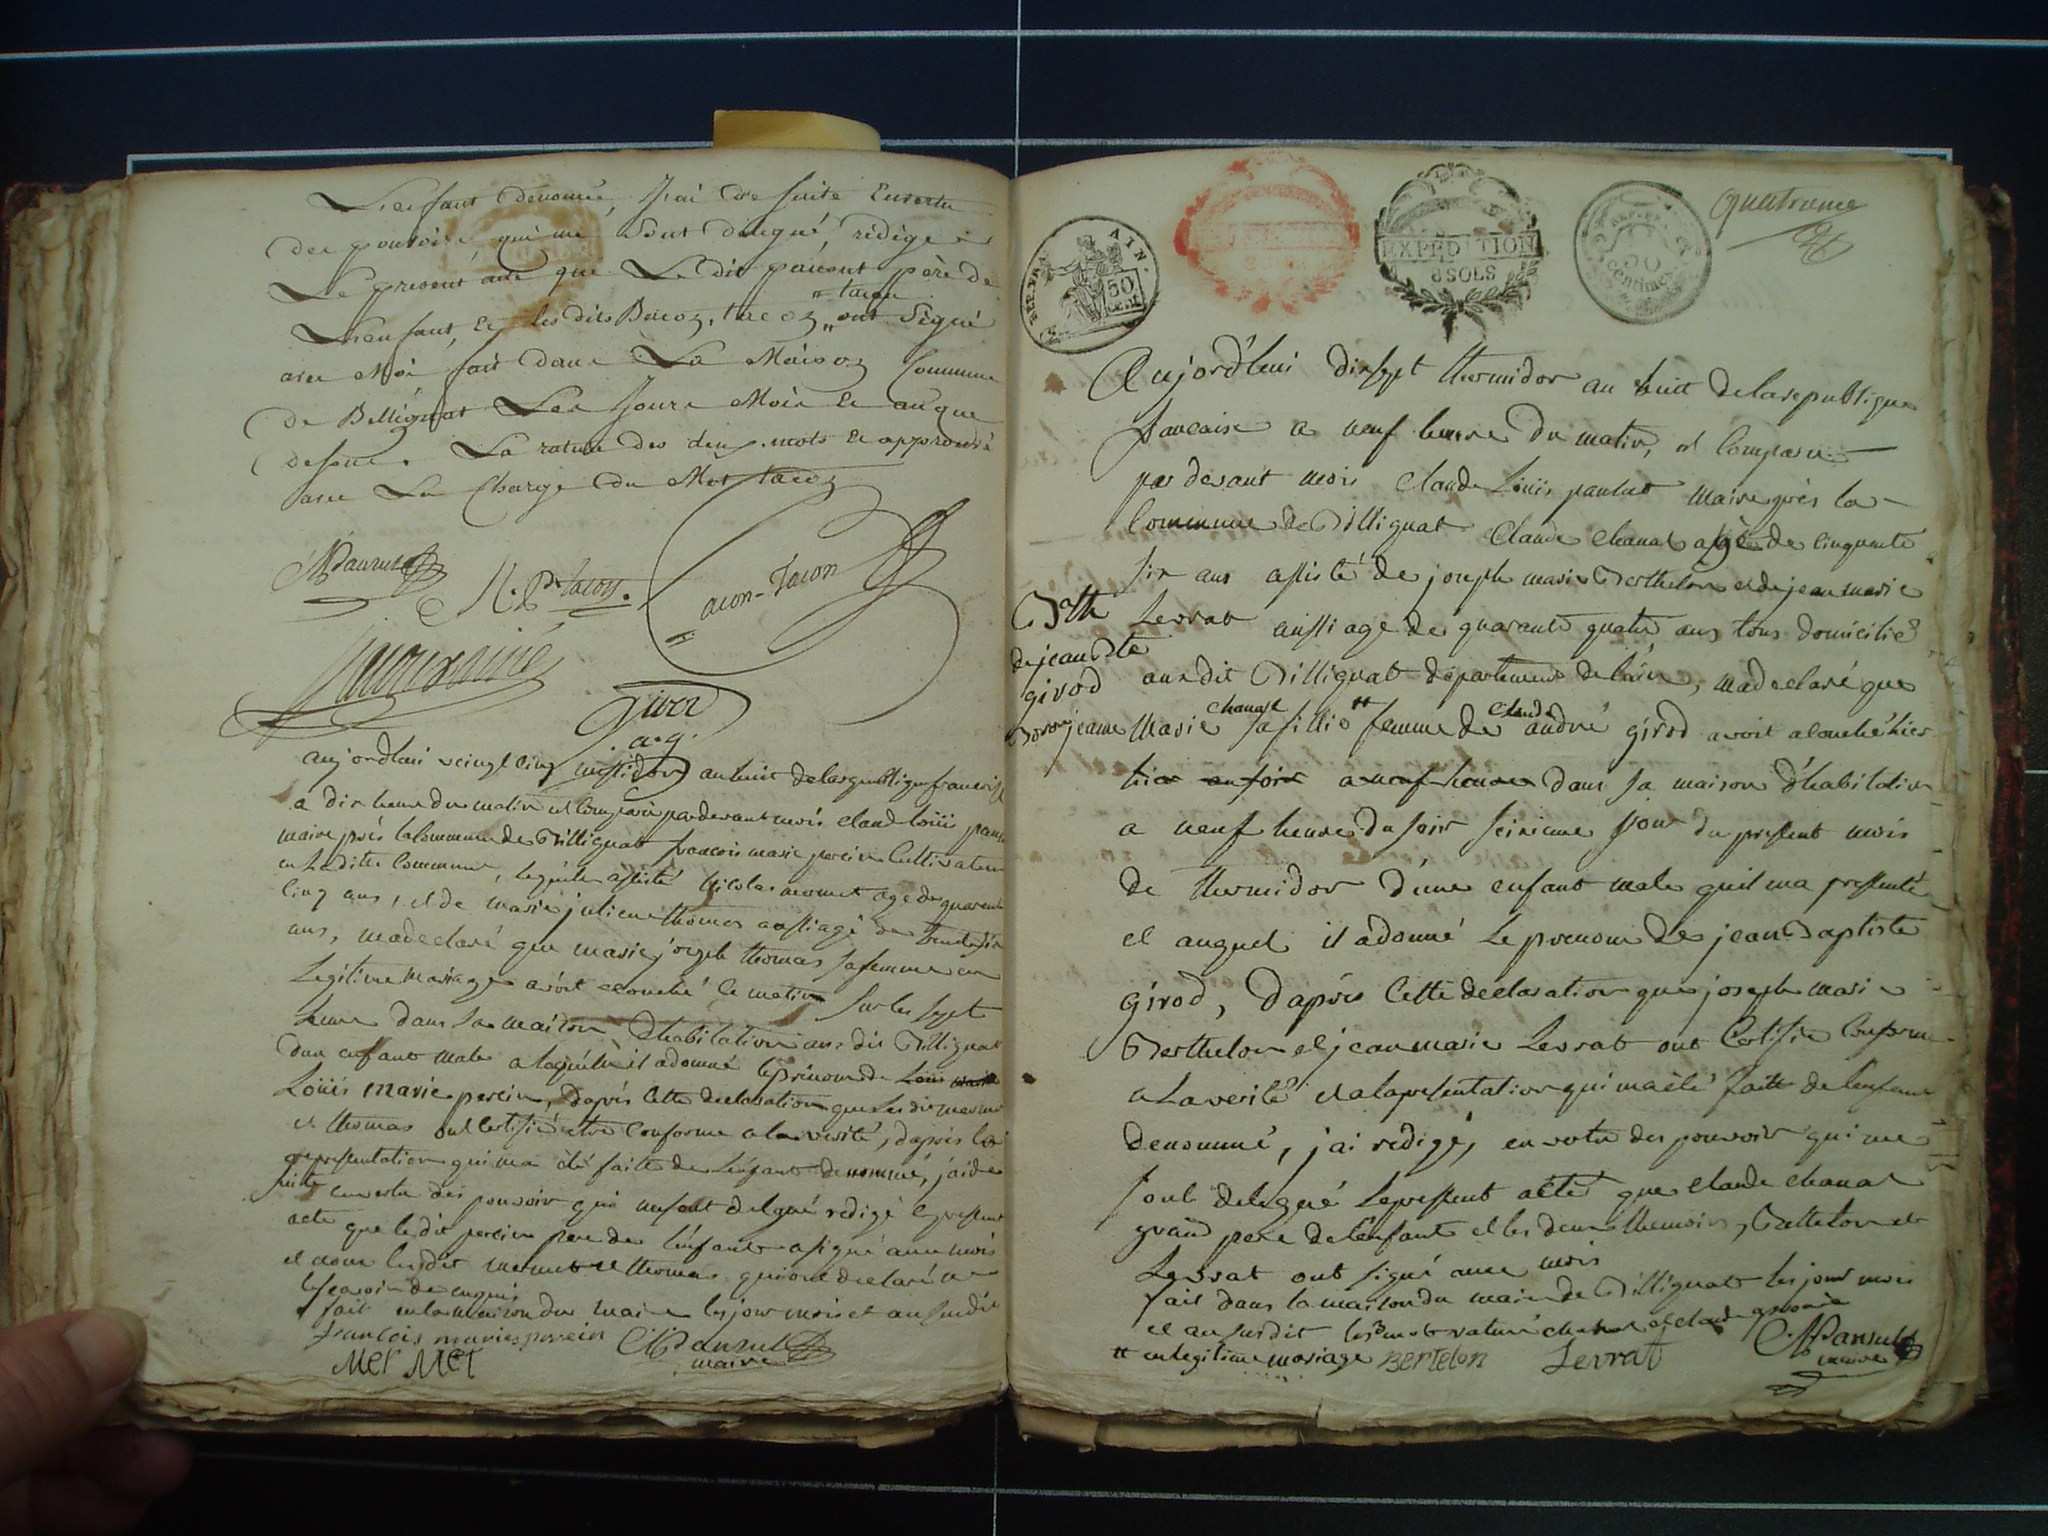 L'enfant denomé, J'ai de suite Envertu
des pouvoirs qui me sont délégué, rédigé
Le présent acte que Le dit parent père de
L'enfant, Et les dits Tacon
ont Signé
avec Moi fait dans La Maison Commune
de Billignat Les Jours Mois Et an que
dessus. La rature des deux mots Et approuvé
avec La Charge du Mot tacon
CLPansut
Tacon
acon-Tacon
aujordhui veingt cinq messidor an huit delarepublique francaise
a dix heure du matin est Comparu pardevant mois claud louis pansu
maire près la Commune de Billignat francois marie perein Cultivateur
en Laditte Commune, lequel assisté Nicolas mermet age de quarente
Cinq ans, et de marie julien thomas aussi agé de trente six
ans, madeclaré que marie joseph thomas safemme en
Legitime Mariage avoit acouché le matin sur les sept
heure dans sa maison dhabitation audit Billignat
dun enfant male alaquelle il adonné leprénom de Louis marie
Louis marie perein, daprès Cette declaration que Les dit mermet
et thomas ont Certifié etre Conforme a la verité, daprès la
representation qui ma été faite de Lenfant denommé, j'ai de
suite envertu des pouvoir qui mesont delegué redigé le present
acte que le dit perein pere de l'enfant a signé avec mois
et avec les dit mermet et thomas qui ont declaré ne
scavoir de enquis
fait en la maison du maire les jour mois et an susdit
francois marie perein CLPansut
maire
Mer Met
REP. FRA. AIN
50
CENT.
EXPEDITION
8 SOLS
50
centimes
quatrieme
Aujord'hui dixsept thermidor an huit delarepublique
francaise a neuf heure du matin, est Comparu
par devant mois Claude Louis pansut maire près la
Commune de Billignat Claude Chanal agé de cinquante
six ans assisté de joseph marie Berthelon et de jean marie
Levrat aussi agé de quarante quatre ans tous domicilié
audit Billignat département de lain, madeclaré que
de jean Bte
girod
jeanne Marie chanal sa fille # femme de claude andré girod avoit acouché hier
hier au soir a neuf heure dans sa maison d'habitation
a neuf heure du soir seizieme jour du present mois
de thermidor d'une enfant male quil ma presenté
et auquel il adonné Le prenom de jean Baptiste
girod, daprès Cette declaration que joseph marie
Berthelon et jean marie Levrat ont Certifié Conforme
a La verité et alapresentation qui ma été faitte de lenfant
denommé, j'ai rédigé, en vertu des pouvoir qui me
sont delegué lepresent acte que claude chanal
grand pere de lenfant et les deux themoins, Bertelon et
Levrat ont signé avec mois
fait dans la maison du maire de Billignat les jour mois
et an susdit les mots rature chanal et claude aprouvé
# en legitime mariage BERTELON Levrat CLPansut
maire